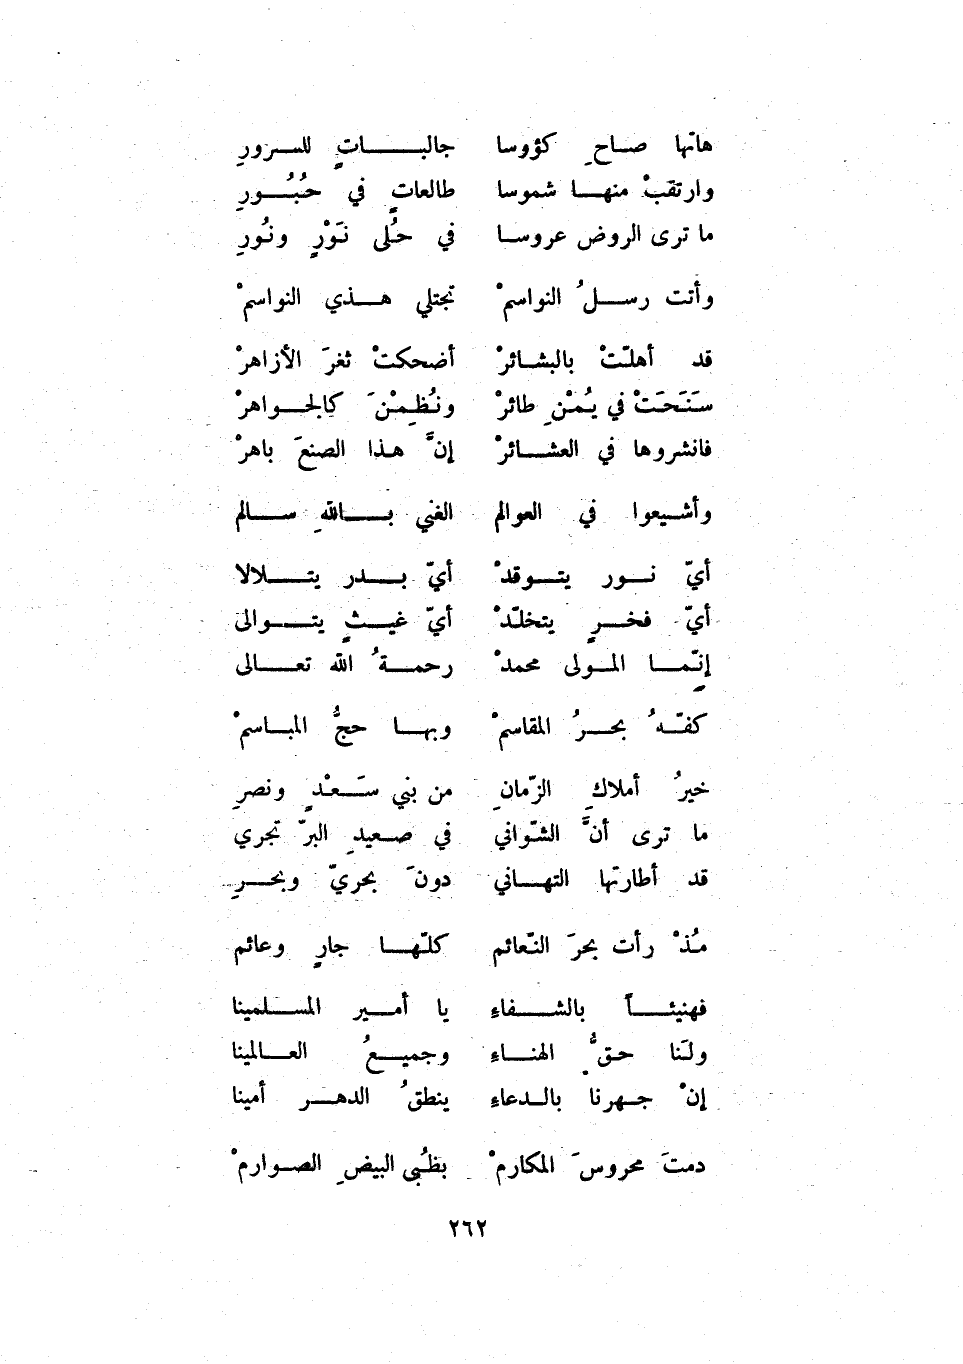 هاتها صاحِ كؤوسا جالباتٍ للسرورِ
وارتقبْ منها شموسا طالعاتٍ في حُبُورِ
ما ترى الروض عروسا في حُلى نَوْرٍ ونُورِ
وأتت رسلُ النواسمْ تجتلي هذي النواسمْ
قد أهلّتْ بالبشائرْ أضحكتْ ثغرَ الأزاهرْ
سَنَحَتْ في يُمْنِ طائرْ ونُظِمْنَ كالجواهرْ
فانشروها في العشائرْ إنَّ هذا الصنعَ باهرْ
وأشيعوا في العوالم الغني باللهِ سالم
أيّ نور يتوقدْ أيّ بدر يتلالا
أيّ فخرٍ يتخلّدْ أيّ غيثٍ يتوالى
إنّما المولى محمدْ رحمةُ الله تعالى
كفّهُ بحرُ المقاسمْ وبها حجُّ المباسمْ
خيرُ أملاكِ الزّمانِ من بني سَعْدٍ ونصرِ
ما ترى أنَّ الشّواني في صعيدِ البرّ تجري
قد أطارتها التهاني دونَ بحريّ وبحرِ
مُذْ رأت بحرَ النّعائم كلّها جارٍ وعائم
فهنيئاً بالشفاءِ يا أمير المسلمينا
ولَنا حقُّ الهناءِ وجميعُ العالمينا
إنْ جهرنا بالدعاءِ ينطقُ الدهر أمينا
دمتَ محروسَ المكارمْ بظُبى البيضِ الصوارمْ
٢٦٢